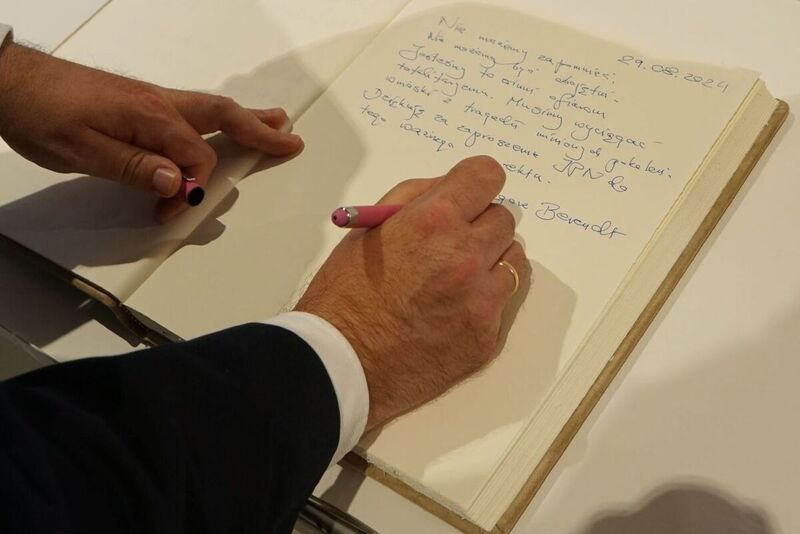 29.08.2024
Nie możemy zapomnieć.
Nie możemy być obojętni.
Jesteśmy to winni ofiarom
totalitaryzmu. Musimy wyciągać
wnioski z tragedii minionych pokoleń.
Dziękuję za zaproszenie IPN do
tego ważnego
Berendt